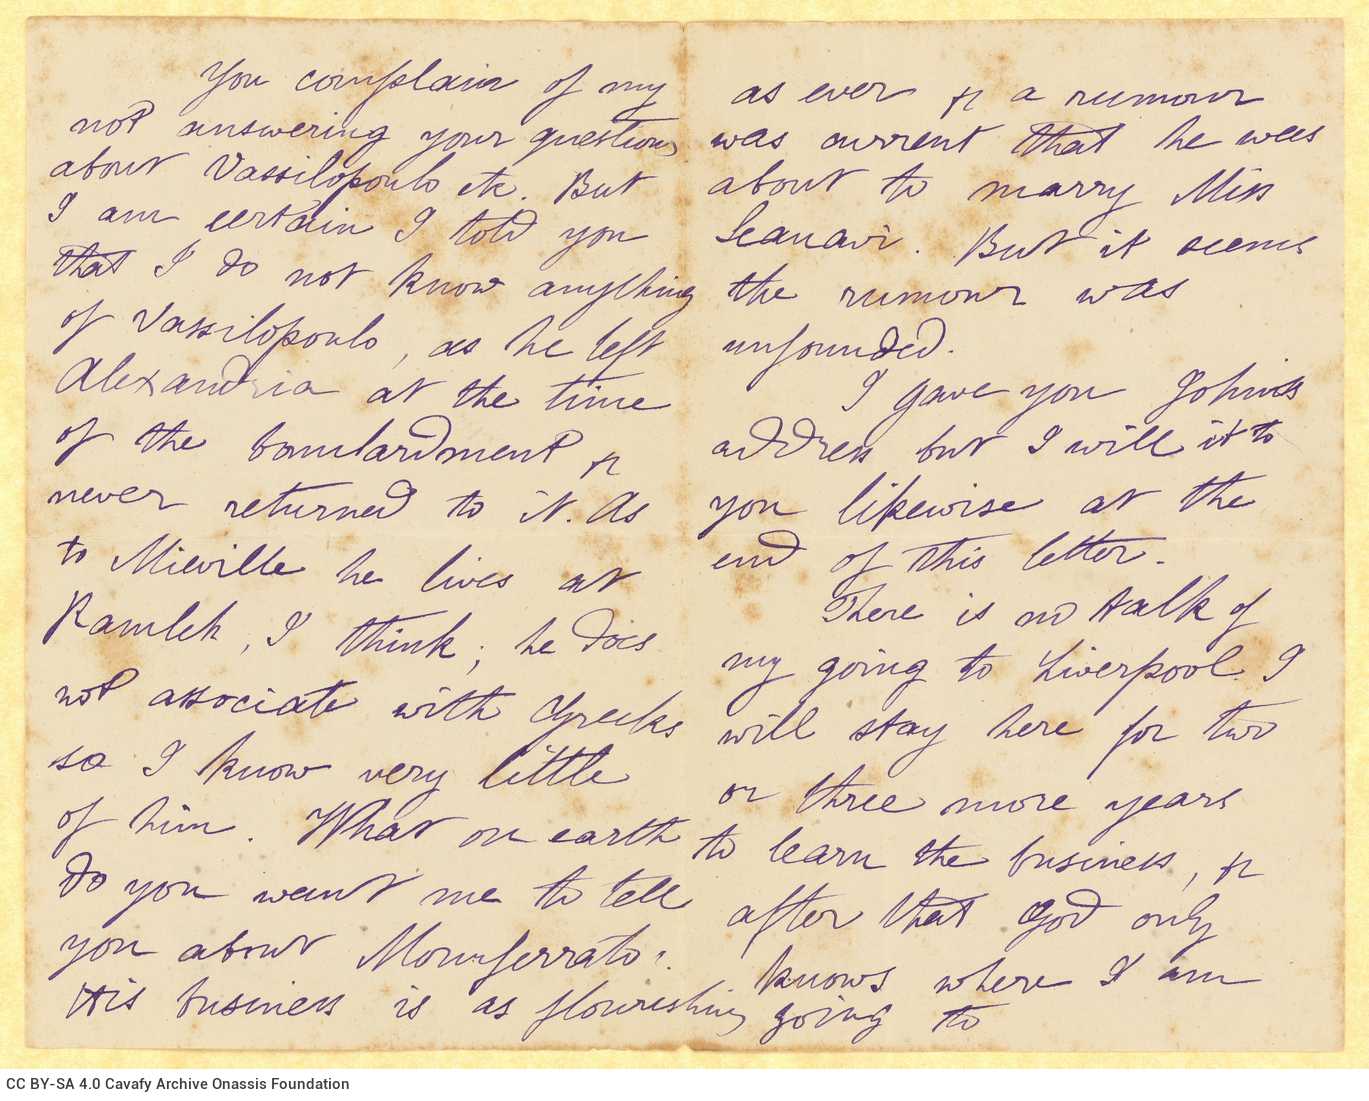 You complain of my
not answering your questions
about Vassilopoulo etc. But
I am certain I told you
that I do not know anything
of Vassilopoulo, as he left
Alexandria at the time
of the bombardment &
never returned to it. As
to Mieville he lives at
Ramleh, I think; he does
not associate with Greeks
so I know very little
of him. What on earth
do you want me to tell
you about Monferrato.
His business is as flourishing
as ever & a rumour
was current that he was
about to marry Miss
But it seems
the rumour was
unfounded.
I gave you John's
address but I will it to
you likewise at the
end of this letter.
There is no talk of
my going to Liverpool. I
will stay here for two
or three more years
to learn the business, &
after that God only
knows where I am
going to
CC BY-SA 4.0 Cavafy Archive Onassis Foundation